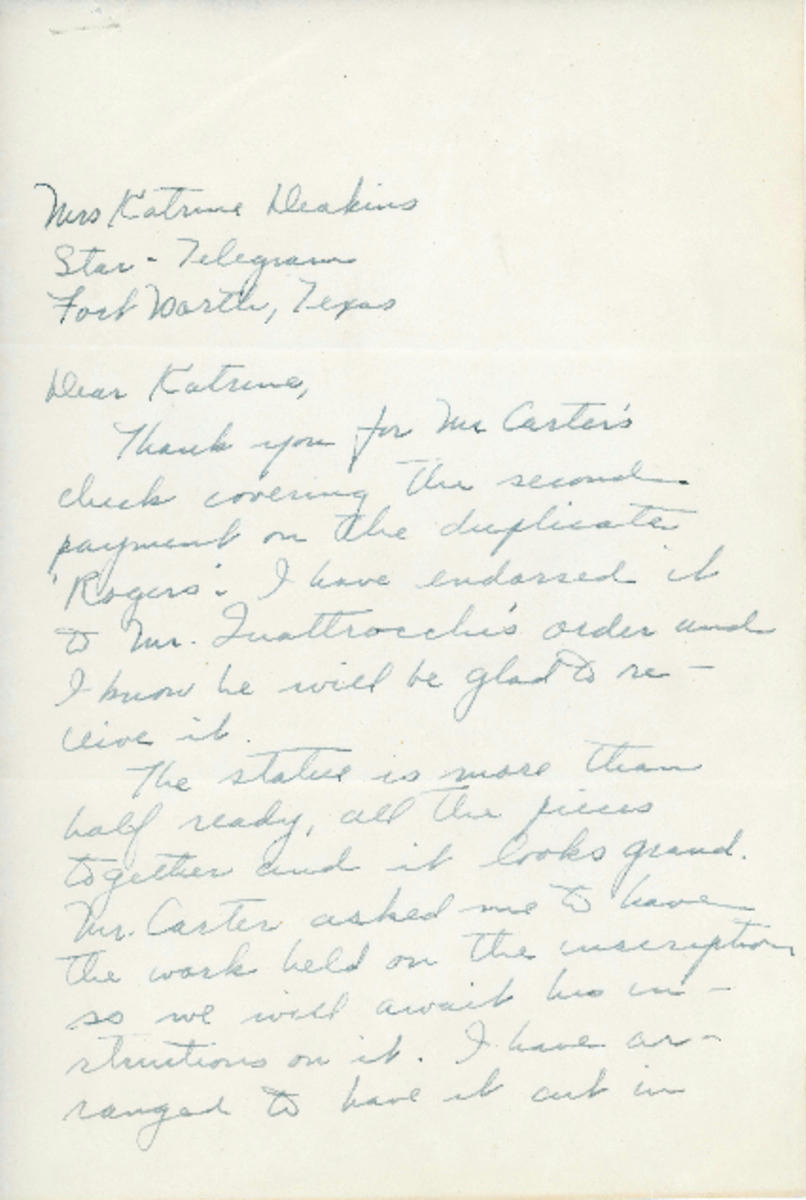 Mrs Katrine Deakins
Star-Telegram
Fort Worth, Texas
Dear Katrine,
Thank you for Mr Carter's
check covering the second
payment on the duplicate
'Rogers'. I have endorsed it
to Mr. Quattrocchi's order and
I know he will be glad to re-
ceive it.
The statue is more than
half ready, all the pieces
together and it looks grand.
Mr. Carter asked me to have
the work held on the inscription
so we will await his in-
structions on it. I have ar-
ranged to have it cut in